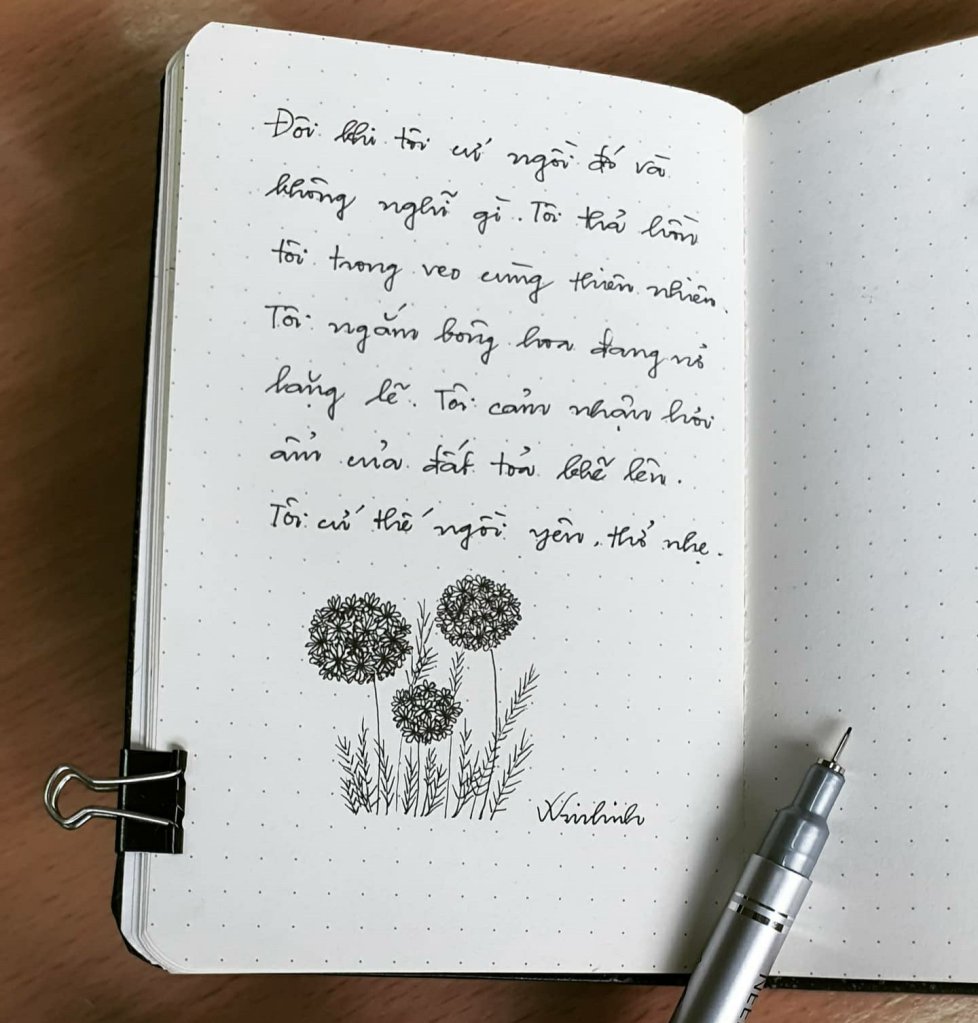 Đôi khi tôi cứ ngồi đó và
không nghĩ gì. Tôi thả hồn
tôi trong veo cùng thiên nhiên.
Tôi ngắm bông hoa đang nở
lặng lẽ. Tôi cảm nhận hơi
ẩm của đất toả khẽ lên.
Tôi cứ thế ngồi yên, thở nhẹ.